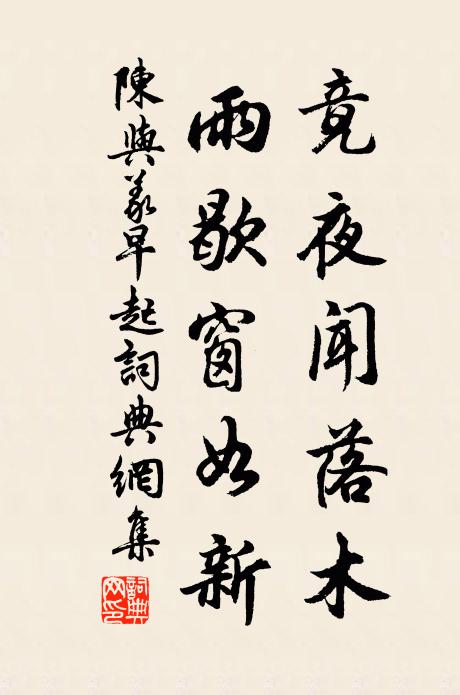 竟夜聞落木
雨歇窗如新
陳與義早起詞典網集
詞典网印